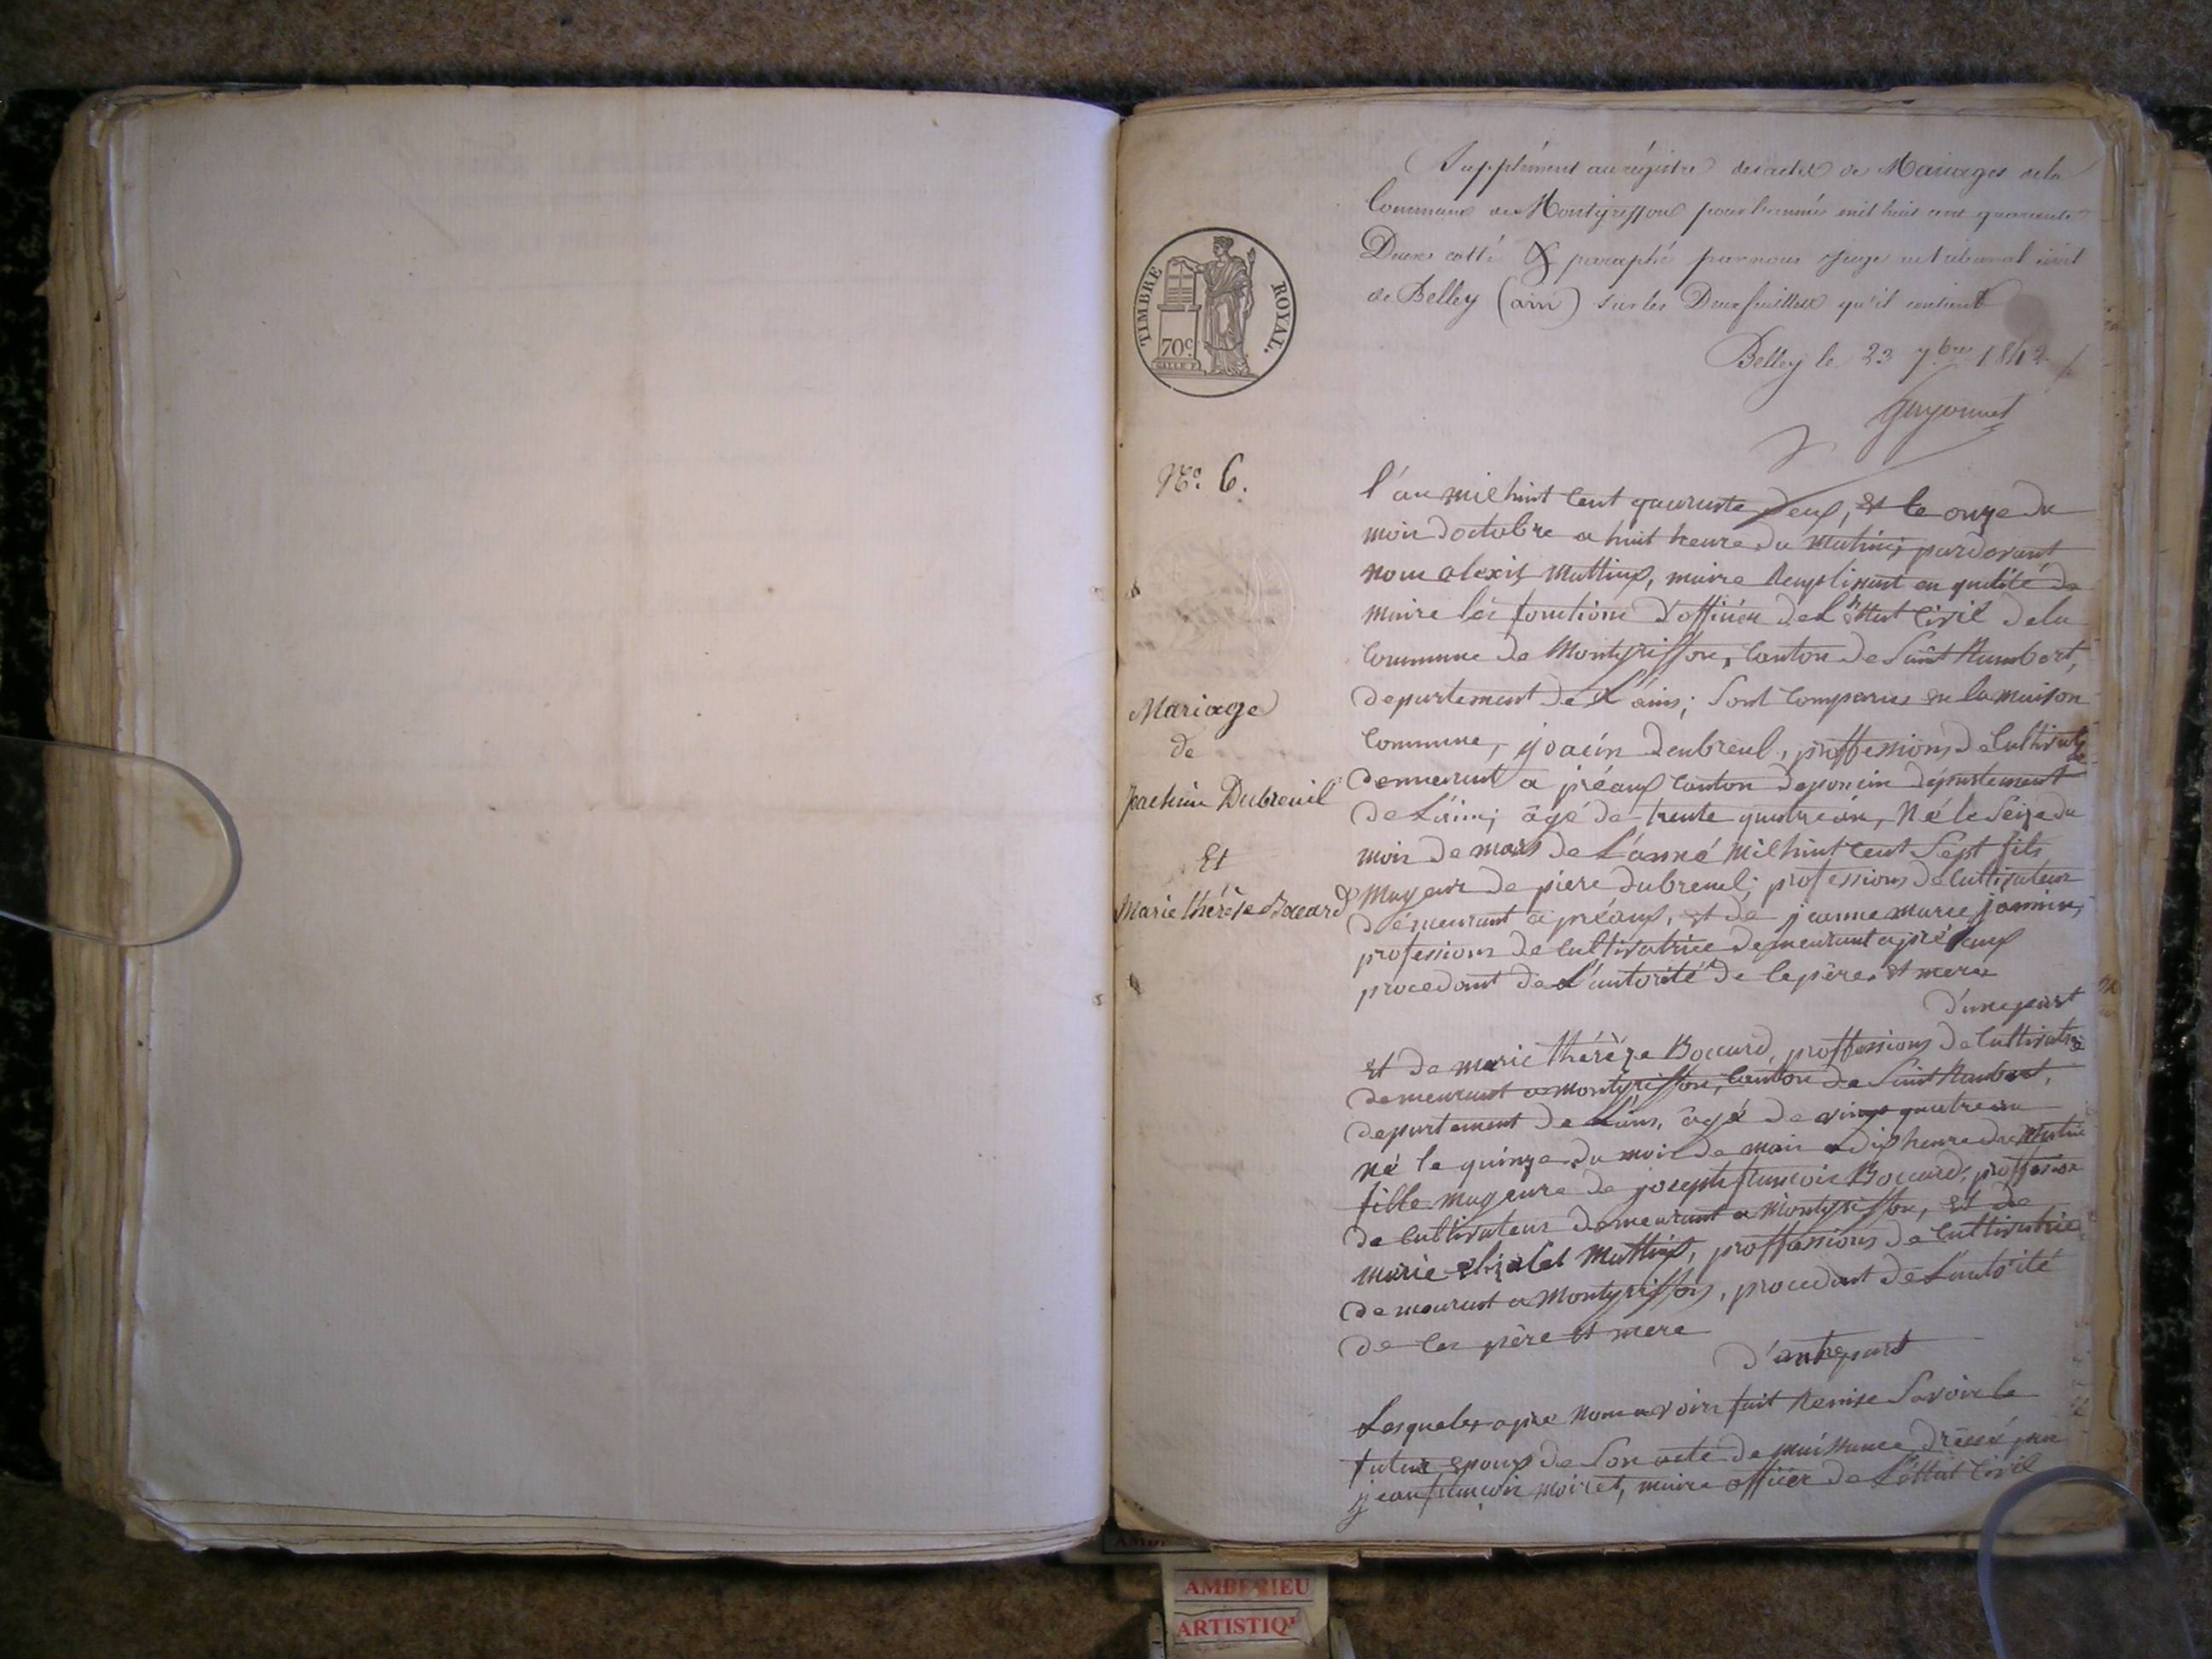 Supplément au régistre des actes de Mariages de la
Commune de Montgriffon pour l'année mil huit cent quarante
Deux cotté & paraphé par nous Juge au tribunal civil
de Belley (ain) sur les Deux feuillets qu'il contient
Belley le 23 7.bre 1842
Guyonnet
TIMBRE ROYAL.
70c.
N.o 6.
l'an mil huit Cent quarante Deux, et le onze du
mois d'octobre a huit heure du Matin; pardevant
nous alexis Mattieux, maire Remplissant en qualité de
maire les fonctions d'officier de L'état Civil de la
Commune de Montgriffon, Canton de Saint Rambert,
departement de L'ain; Sont Comparus en la maison
Commune, joacin deubreul, proffessions de Cultivateur
demeurant a préaux Canton de poncin département
de L'ain; âgé de trente quatre ans, Né le Seize du
mois de mars de L'anné Mil huit Cent Sept fils
Mageur de piere dubreuel; professions de Cultivateur
démeurant a préaux, et de jeanne marie jannin,
professions de Cultivatrice demeurant a préaux
procedant de L'autorité de Ces père et mere
d'une part
Mariage
de
Joachim Dubreuil
Et
Marie thérèse Bocard
et de marie thérèze Boccard, proffessions de Cultivatrice
demeurant a montgriffon, Canton de Saint Rambert,
departement de L'ain, âgé de vingt quatre an
né le quinze du mois de mais a dix heure du Matin
fille mageure de joseph francois Boccard, proffession
de Cultivateur demeurant a Montgriffon, et de
marie elizabet Mattieux, proffessions de Cultivatrice
demeurant a Montgriffon, procedant de L'autorité
de Ces père et mere
d'autre part
Lesqueles apré nous avoir fait Remise Savoir le
futur epoux de Son acte de naissance dréssé par
jean francois moiret, maire officier de L'éttat Civil
AMBERIEU
ARTISTIQ